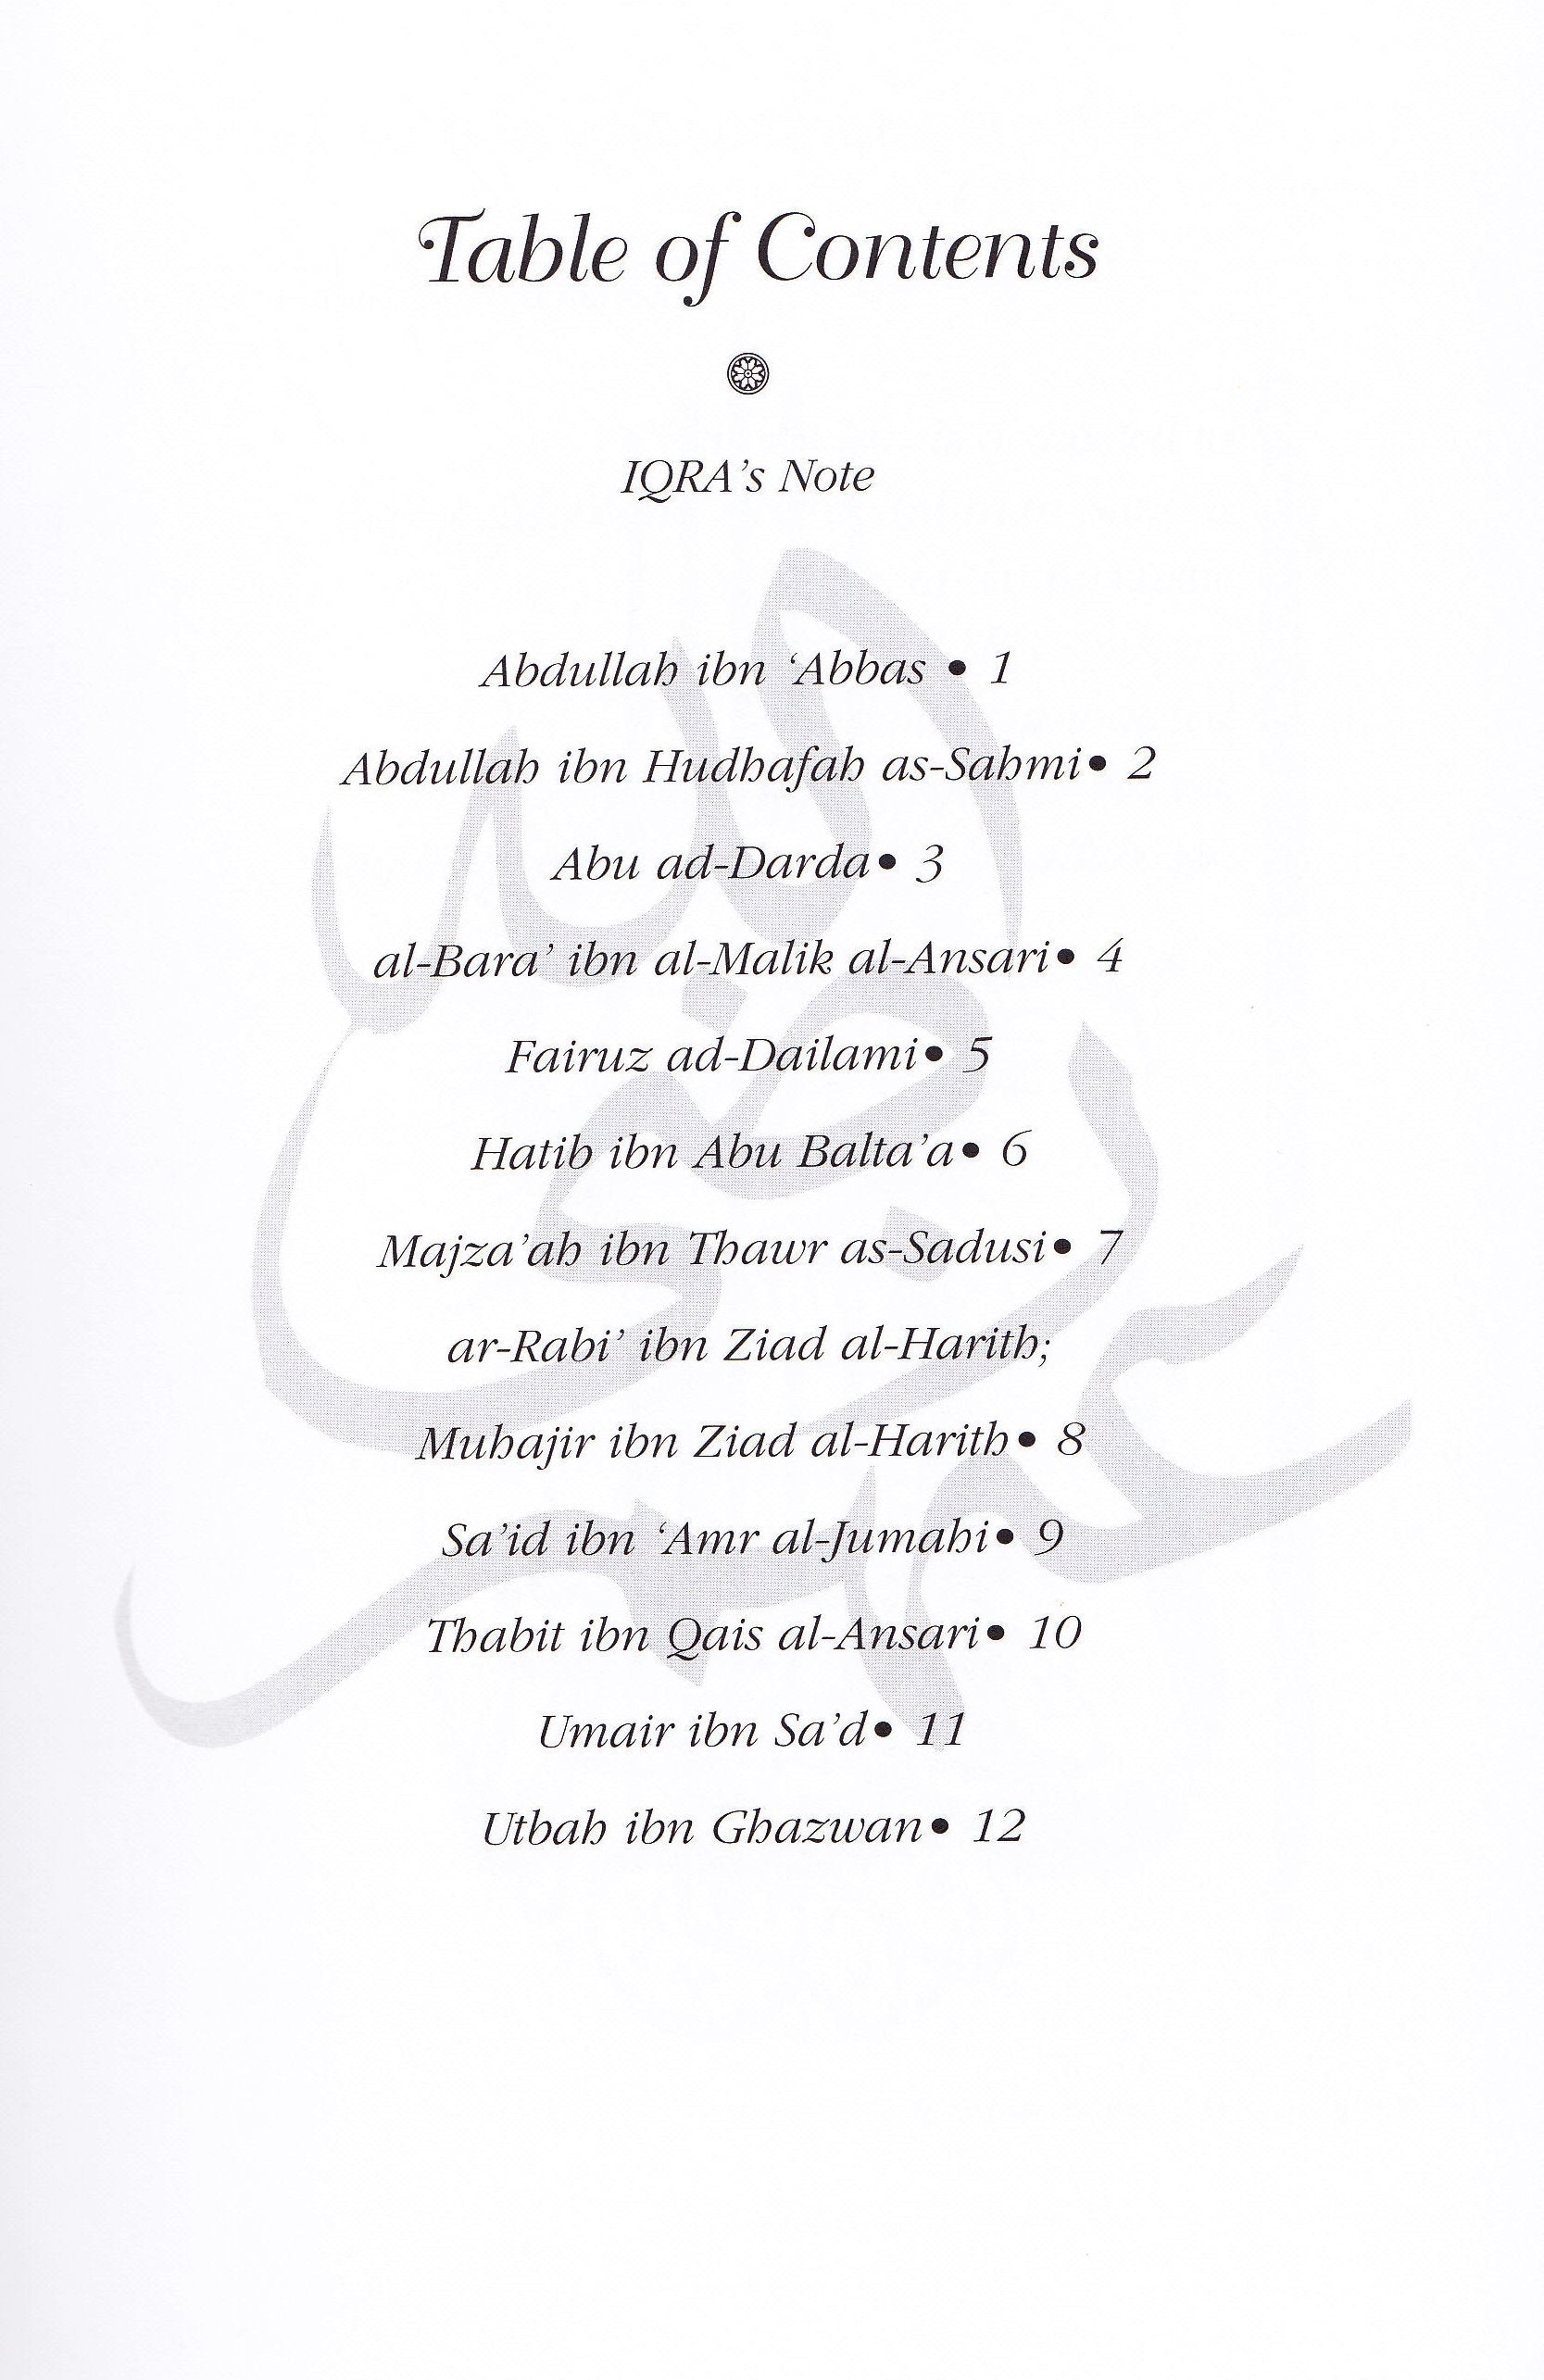 Table of Contents
IQRA's Note
Abdullah ibn ‘Abbas • 1
Abdullah ibn Hudhafah as-Sahmi• 2
Abu ad-Darda• 3
al-Bara’ ibn al-Malik al-Ansari• 4
Fairuz ad-Dailami• 5
Hatib ibn Abu Balta’a• 6
Majza’ah ibn Thawr as-Sadusi• 7
ar-Rabi’ ibn Ziad al-Harith;
Muhajir ibn Ziad al-Harith• 8
Sa’id ibn ‘Amr al-Jumahi• 9
Thabit ibn Qais al-Ansari• 10
Umair ibn Sa’d• 11
Utbah ibn Ghazwan• 12
رضي الله عنهم